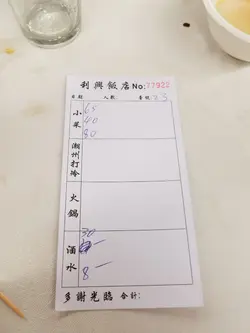 利興飯店 No: 77922
日期 人數 臺號 23
小菜
65
40
80
潮州打冷
火鍋
酒水
30
8 —
多謝光臨 合計: